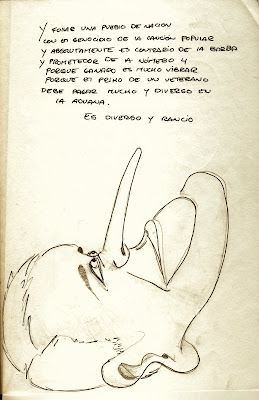 Y FUMAR UNA PUEBLO DE NACION
CON EL GENOCIDIO DE LA CANCIÓN POPULAR
Y ABSOLUTAMENTE ES CONTRARIO DE LA BARBA
Y PROMETEDOR DE A NÚMERO 4
PORQUE GANADO ES MUCHO VIBRAR
PORQUE EL PRIMO DE UN VETERANO
DEBE PAGAR MUCHO Y DIVERSO EN
LA ADUANA.
ES DIVERSO Y RANCIO